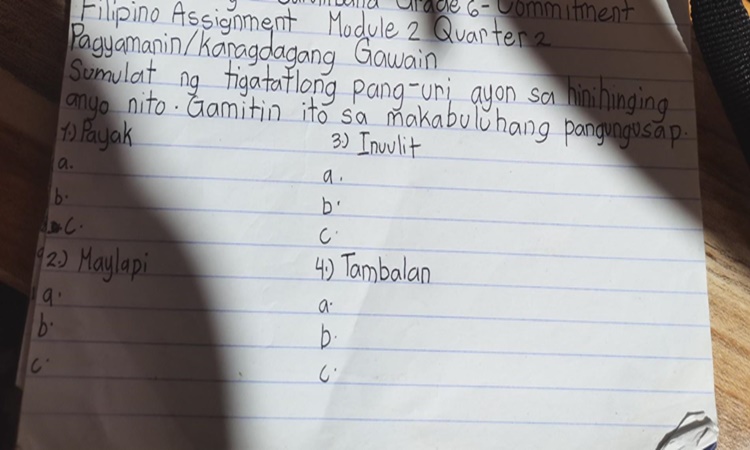 Grade 6- Commitment
Filipino Assignment Module 2 Quarter 2
Pagyamanin/Karagdagang Gawain
Sumulat ng tigatatlong pang-uri ayon sa hinihinging
anyo nito. Gamitin ito sa makabuluhang pangungusap.
1.) Payak
a.
b.
c.
2.) Maylapi
a.
b.
c.
3.) Inuulit
a.
b.
c.
4.) Tambalan
a.
b.
c.